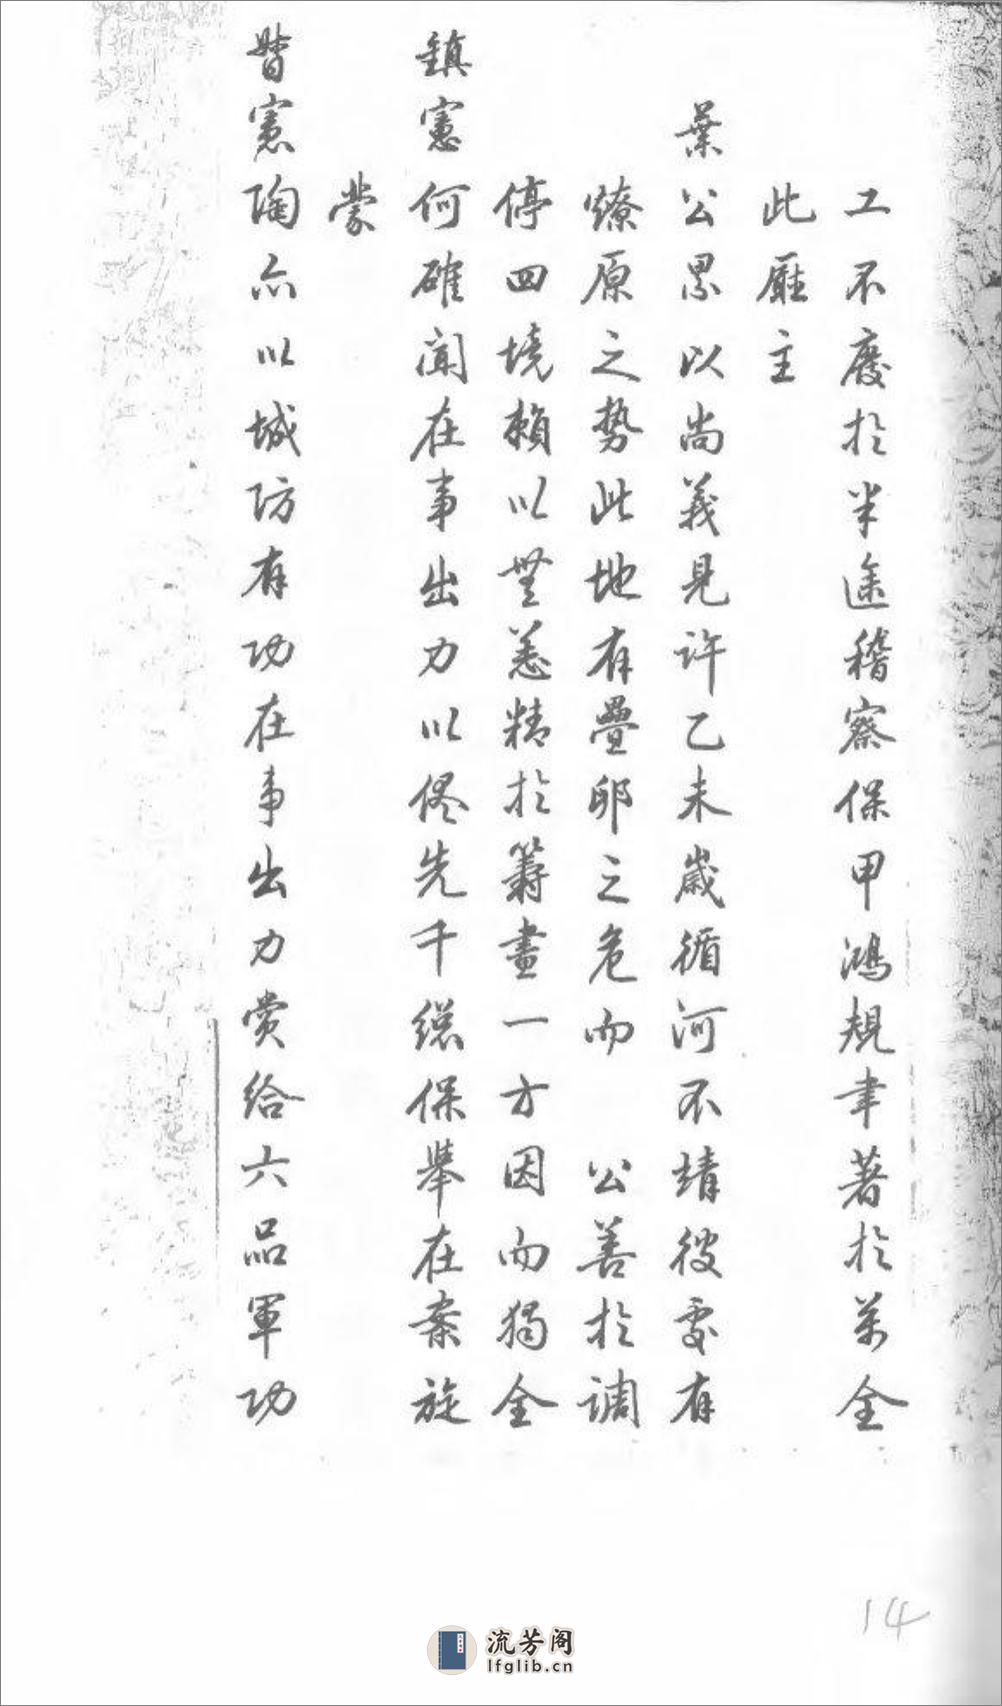 工不廢於半途稽察保甲鴻規聿著於萬全
此廳主
葉公累以尚義見許乙未歲循河不靖彼處有
燎原之勢此地有疊卵之危而 公善於調
停四境賴以無恙精於籌畫一方因而獨全
鎮憲何確聞在事出力以儘先千總保舉在案旋
蒙
督憲陶亦以城防有功在事出力賞給六品軍功
14
流芳阁
lfglib.cn